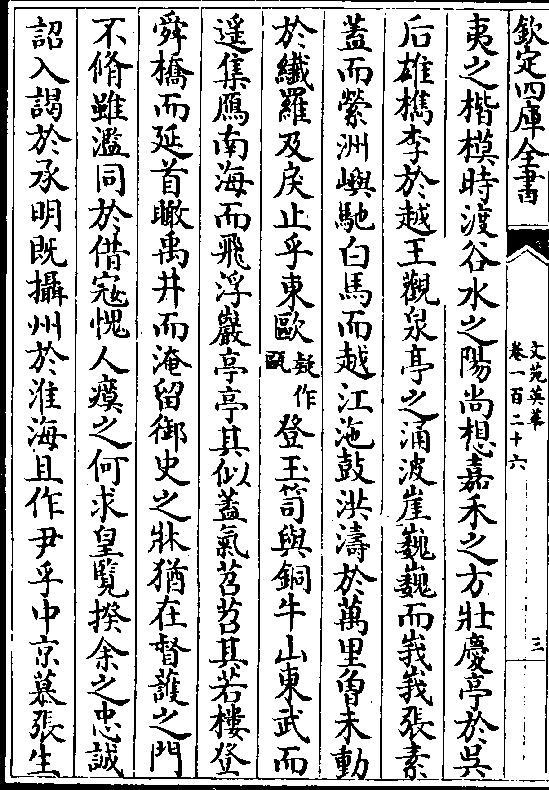 欽定四庫全書
文苑英華
卷一百二十六
三
夷之楷模時渡谷水之陽尚想嘉禾之方壯慶亭於吳
后雄檇李於越王觀泉亭之涌波崖巍巍而峩峩張素
蓋而縈洲嶼馳白馬而越江沲鼓洪濤於萬里曽未動
於纎羅及戾止乎東歐疑作甌登玉笥與銅牛山東武而
遥集鴈南海而飛浮巖亭亭其似蓋氣苕苕其若樓登
舜橋而延首瞰禹井而淹留御史之牀猶在督䕶之門
不脩雖濫同於借寇愧人瘼之何求皇覽揆余之忠誠
詔入謁於承明既攝州於淮海且作尹乎中京慕張生